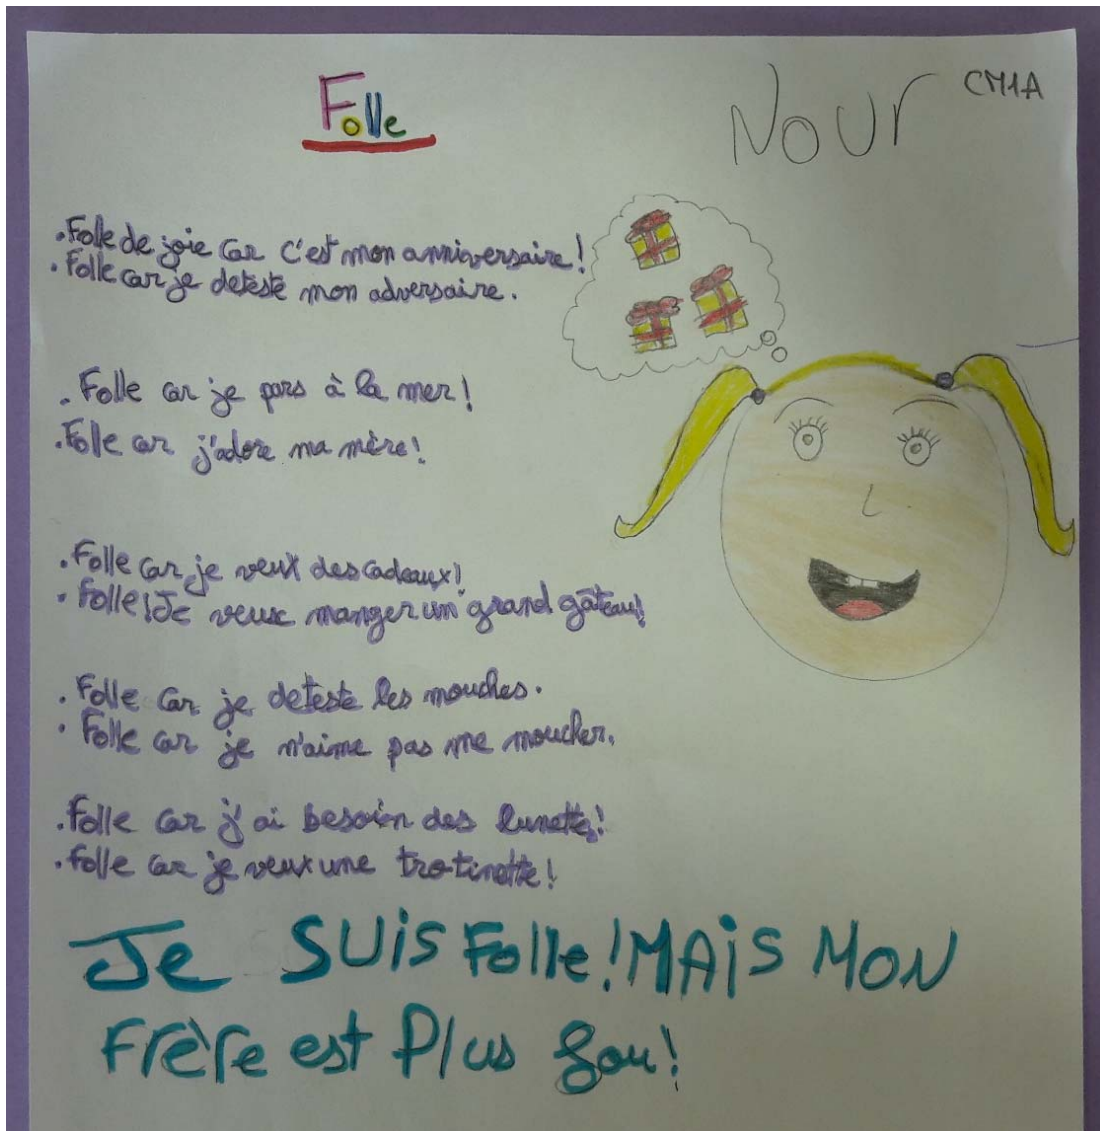 Folle
Nour CM1A
.Folle de joie car c'est mon anniversaire!
.Folle car je deteste mon adversaire.
.Folle car je pars à la mer!
.Folle car j'adore ma mère!
.Folle car je veux des cadeaux!
.Folle!Je veux manger un grand gâteau!
.Folle car je deteste les mouches.
.Folle car je n'aime pas me moucher.
.Folle car j'ai besoin des lunette!
.Folle car je veux une trotinette!
Je SUiS Folle!MAiS MON
Frère est Plus fou!